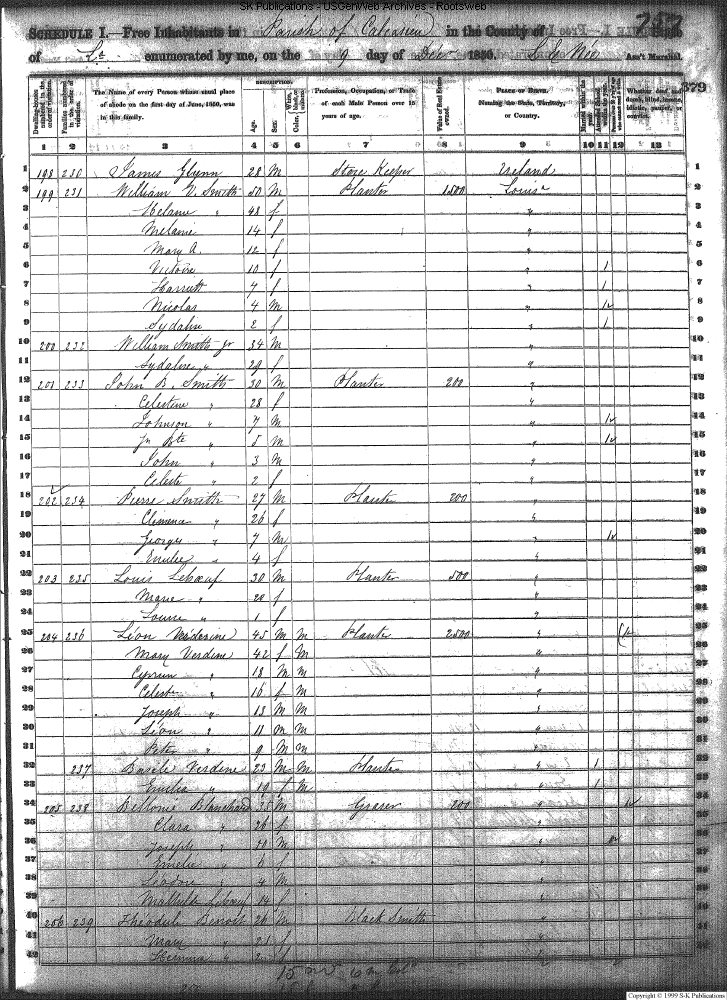 SK Publications - USGenWeb Archives - Rootsweb
257
SCHEDULE I.—Free Inhabitants in Parish of Calcasieu in the County of
of La enumerated by me, on the 9 day of Decr 1850. Ass't Marshal.
379
Dwelling-houses numbered in the order of visitation. Families numbered in the order of visitation. The Name of every Person whose usual place of abode on the first day of June, 1850, was in this family. DESCRIPTION. Age. Sex. Color, White, black, or mulatto. Profession, Occupation, or Trade of each Male Person over 15 years of age. Value of Real Estate owned. PLACE OF BIRTH. Naming the State, Territory, or Country. Married within the year. Attended School within the year. Whether deaf and dumb, blind, insane, idiotic, pauper, or convict.
1 2 3 4 5 6 7 8 9 10 11 12 13
1 198 230 James Glynn 28 M Store Keeper Ireland 1
2 199 231 William V. Smith 50 M Planter 1500 Louisa 2
3 Melanie " 48 f " 3
4 Melanie 14 f " 4
5 Mary A. 12 f " 5
6 Victoire 10 f " 1 6
7 Harriett 7 f " 1 7
8 Nicolas 4 M " 8
9 Sydalin 2 f " 1 9
10 200 232 William Smith Jr 34 M " 10
11 Sydaline " 29 f " 11
12 201 233 John B. Smith 30 M Planter 200 " 12
13 Celestine " 28 f " 13
14 Johnson " 7 M " 14
15 Jn Bte " 5 M " 15
16 John " 3 M " 16
17 Celeste " 2 f " 17
18 202 234 Pierre Smith 27 M Planter 200 " 18
19 Clemence " 26 f " 19
20 Georges " 7 M " 20
21 Emilie " 4 f " 21
22 203 235 Louis Leboeuf 30 M Planter 500 " 22
23 Marie " 20 f " 23
24 Louise " 1 f " 24
25 204 236 Léon Verdine 45 M M Planter 2500 " 25
26 Mary Verdine 42 f M " 26
27 Cyprien " 18 M M " 27
28 Celest " 16 f M " 28
29 Joseph " 13 M M " 29
30 Léon " 11 M M " 30
31 Pete " 9 M M " 31
32 237 Basile Verdine 23 M M Planter " 1 32
33 Emilia " 19 f M " 1 33
34 205 238 Blanchard 35 M Grazer 200 " 34
35 Clara " 26 f " 35
36 Joseph " 20 M " 36
37 Emelie " 6 f " 37
38 " 4 M " 38
39 Mathilde Leboeuf 14 f " 39
40 206 239 Theodule Benoit 26 M Black Smith " 40
41 Mary " 21 f " 41
42 " 2 f " 42
Copyright © 1999 S-K Publications